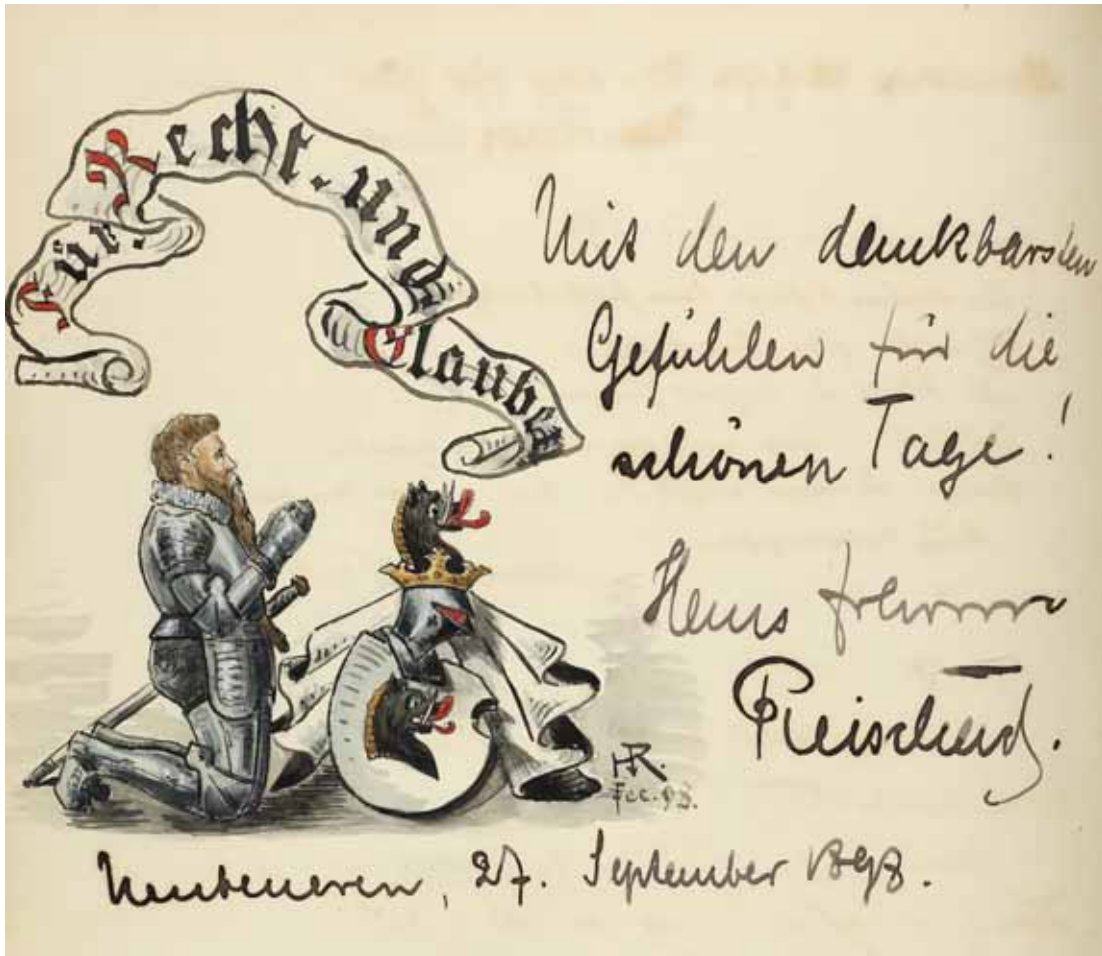 Für. Recht. und Glauben
Mit den dankbarsten
Gefühlen für die
schönen Tage!
Hans
Reischach.
HR.
Fec. 98.
Neubeueren, 27. September 1898.